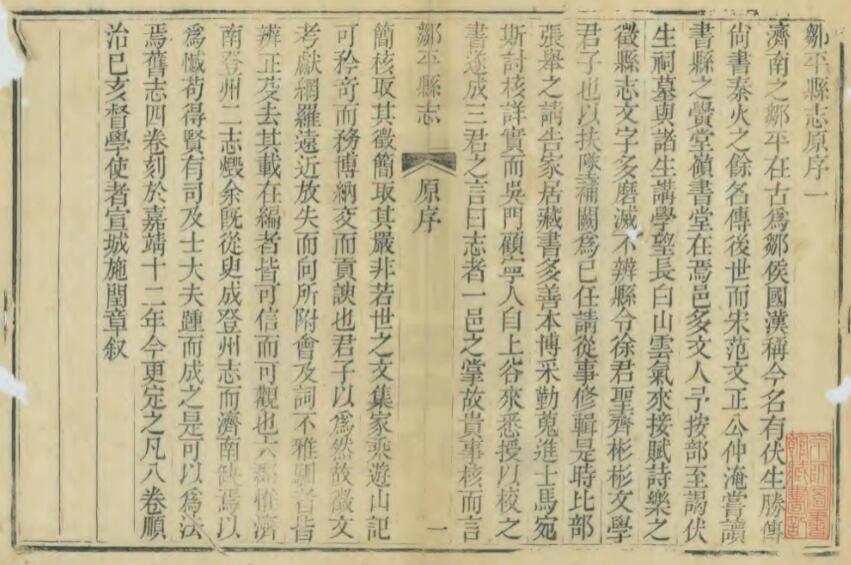 鄒平縣志原序一
濟南之鄒平在古爲鄒侯國漢稱今名有伏生勝傳
尙書秦火之餘名傳後世而宋范文正公仲淹嘗讀
書縣之黌堂嶺書堂在焉邑多文人予按部至謁伏
生祠墓與諸生講學望長白山雲氣來接賦詩樂之
徵縣志文字多磨滅不辨縣令徐君聖齊彬彬文學
君子也以扶墜補闕爲已任請從事修輯是時比部
張舉之請告家居藏書多善本博采勤蒐進士馬宛
斯討核詳實而吳門顧寧人自上谷來悉授以校之
書遂成三君之言曰志者一邑之掌故貴事核而言
鄒平縣志 原序 一
簡核取其徵簡取其嚴非若世之文集家乘遊山記
可矜奇而務博納交而貢諛也君子以爲然故徵文
考獻網羅遠近放失而向所附會及詞不雅馴者皆
辨正芟去其載在編者皆可信而可觀也六郡惟濟
南登州二志燬余旣從臾成登州志而濟南缺焉以
爲憾苟得賢有司及士大夫踵而成之是可以爲法
焉舊志四卷刻於嘉靖十二年今更定之凡八卷順
治已亥督學使者宣城施閏章叙